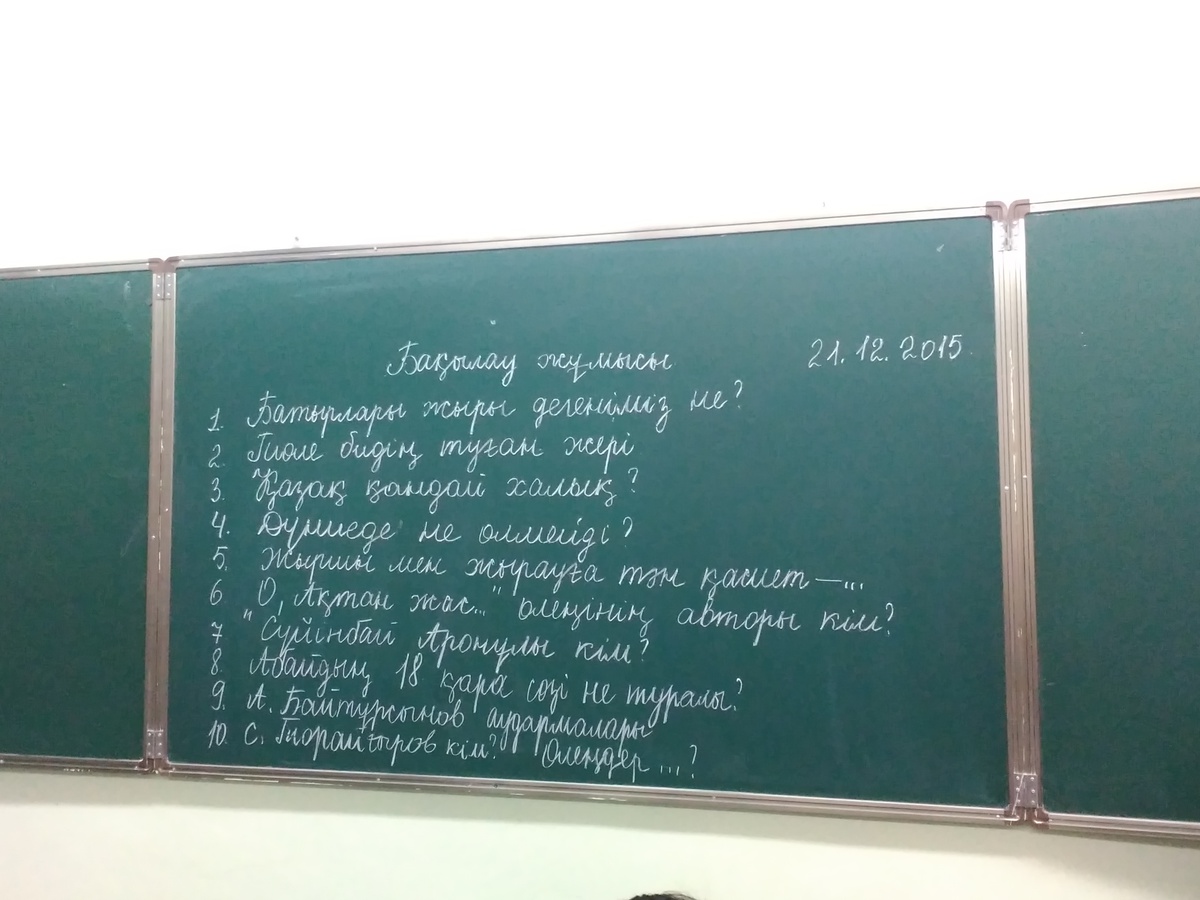 Бақылау жұмысы 21.12.2015
1. Батырлары жыры дегеніміз не?
2. Төле бидің туған жері
3. Қазақ қандай халық?
4. Дүниеде не өлмейді?
5. Жыршы мен жырауға тән қасиет –...
6. "О, Ақтан жас..." өлеңінің авторы кім?
7. Сүйінбай Аронұлы кім?
8. Абайдың 18 қара сөзі не туралы?
9. А. Байтұрсынов аудармалары
10. С. Торайғыров кім? Өлеңдер ...?